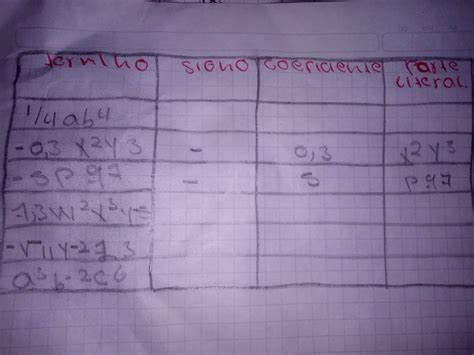 termino signo coeficiente Parte
literal.
1/4ab4
-0,3 x2y3 - 0,3 x2y3
-5p97 - 5 p97
7,3m2x3y5
-√11y-2z3
a3b-2c6